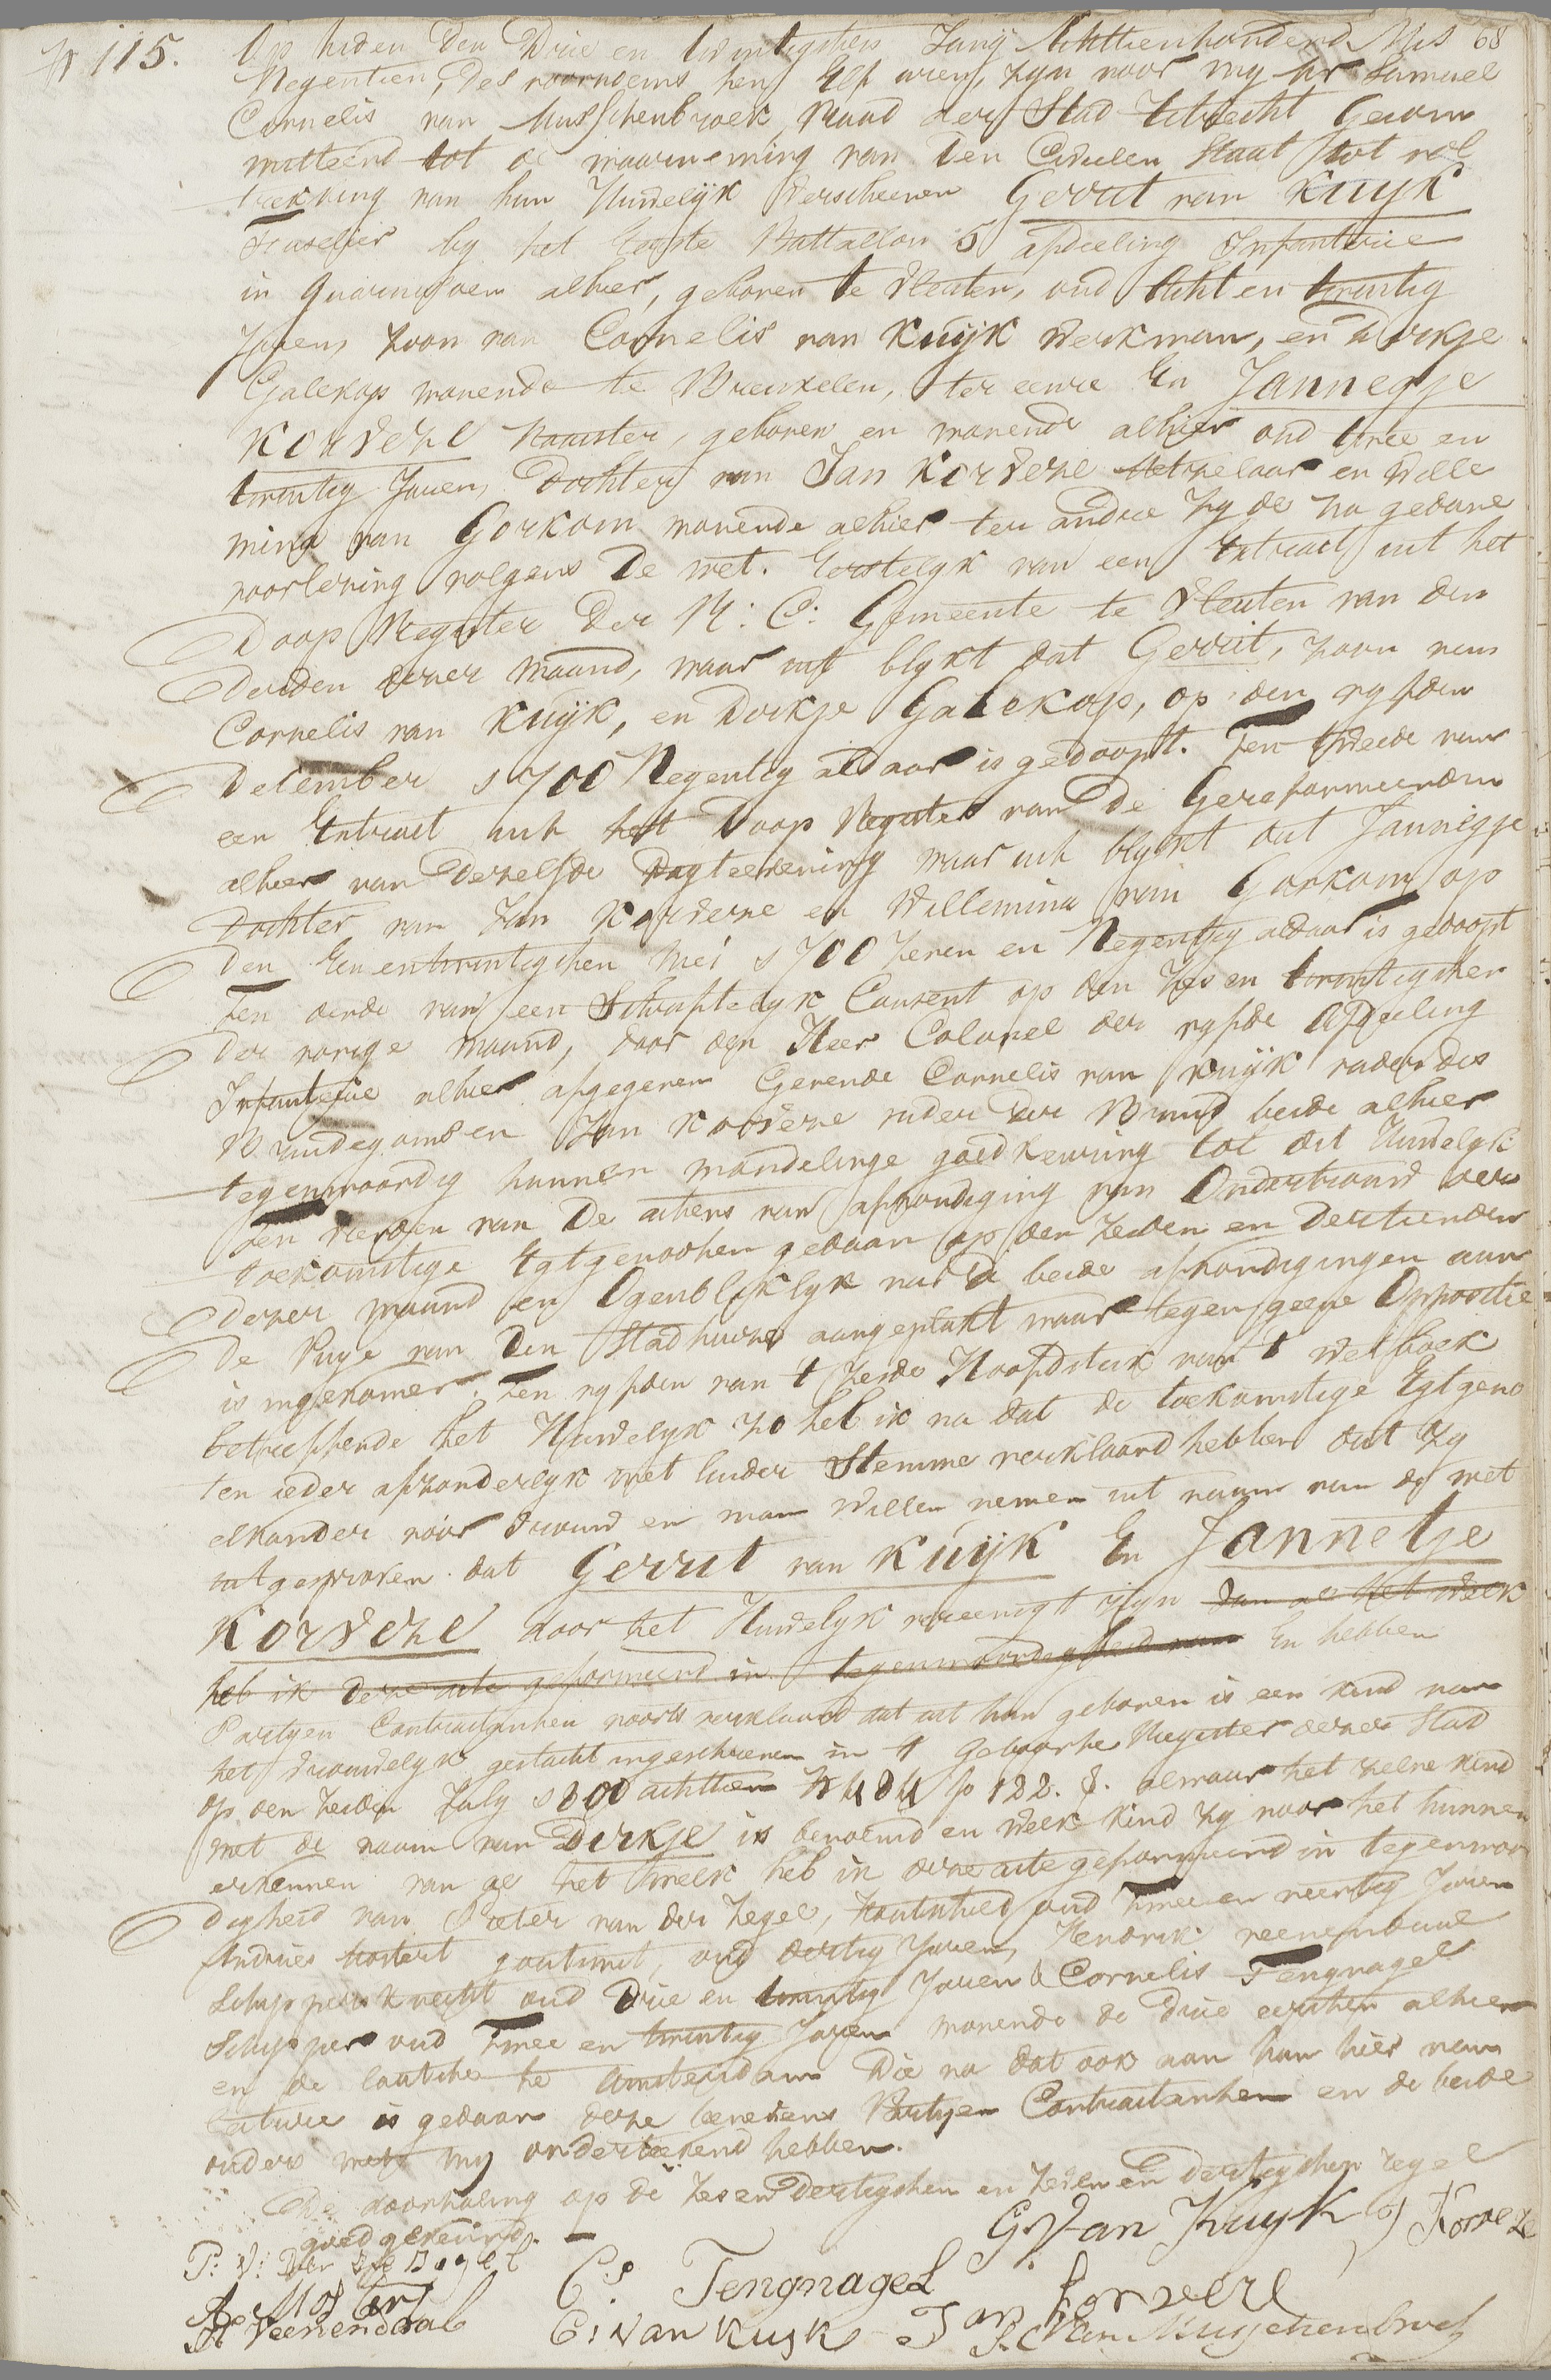 N 115. Op heden den Drie en twintigsten Junij Achttienhonderd 68
Negentien, des voormiddens ten Elf uren, zyn voor my Mr Samuel
Cornelis van Musschenbroek, Raad der Stad Utrecht Gecom
mitteerd tot de waarneming van den Civielen Staat tot vol
trekking van hun Huwelijk Verscheenen Gerrit van Kuijk
Fuselier by het Eerste Battallon 5 afdeeling Infanterie
in Guarnisoen alhier, geboren te Vleuten, oud Acht en twintig
Jaren, zoon van Cornelis van Kuijk Werkman, en Dirkje
Galekop wonende te Breukelen, ter eenre En Jannegje
Korveze Naaister, geboren en wonende alhier oud twee en
twintig Jaren, Dochter van Jan Korveze Metzelaar en Wille
mina van Gorkom wonende alhier ter andre Zyde na gedane
voorlezing volgens De wet. Eerstelyk van een Extract uit het
Doop Register Der R: C: Gemeente te Vleuten van den
derden dezer maand, waar uit blykt dat Gerrit, zoon van
Cornelis van Kuijk, en Dirkje Galekop, op den vyfden
December 1700 Negentig aldaar is gedoopt. Ten tweede van
een Extract uit het Doop Register van De Gereformeerden
alhier van Dezelfde Dagteekening waar uit blykt dat Jannegje
Dochter van Jan Korveze en Willemina van Gorkom op
den Eenentwintigsten Mei 1700 Zeven en Negentig aldaar is gedoopt
Ten derde van een Schriftelyk Consent op den Zes en twintigsten
der vorige maand, door den Heer Colonel der vyfde Afdeeling
Infanterie alhier afgegeven Gevende Cornelis van Kuijk vader des
Bruidegoms en Jan Korveze vader der Bruid beide alhier
tegenwoordig hunnen mondelinge goedkeuring tot dit Huwelyk
Ten vierden van De actens van afkondiging van Ondertrouw der
toekomstige Egtgenooten gedaan op den Zesden en Dertienden
dezer maand en Ogenbliklyk na de beide afkondigingen aan
De Puye van Den Stadhuize aangeplakt waar tegen geene Oppositie
is ingekomen. Ten vyfden van 't Zesde Hoofdstuk van 't Wetboek
betreffende het Huwelyk zo heb ik na dat de toekomstige Egtgeno
ten ieder afzonderlyk met luider Stemme verklaard hebben dat zy
elkander voor Vrouw en man Willen nemen uit naam van de wet
uitgesproken dat Gerrit van Kuijk En Jannetje
Korveze door het Huwelyk vereenigt zyn van al het welk
heb ik deze acte geformeerd in tegenwoordigheid van En hebben
Partyen Contractanten voorts verklaard dat uit hun geboren is een kind van
het vrouwelyk geslacht ingeschreven in 't Geboorte Register dezer Stad
op den Zesden July 1800 achttien N 484 fo 122. f. alwaar het zelve kind
met de naam van Dirkje is benoemd en welk kind zy voor het hunnen
erkennen van al het welk heb ik deze acte geformeerd in tegenwoor
digheid van Pieter van der Zegel, Koutsmid oud twee en veertig Jaren
Andries Mostert goutsmit, oud dertig Jaren, Hendrik Veenendaal
Schippersknecht oud Drie en twintig Jaren & Cornelis Tengnagel
Schipper oud twee en twintig Jaren wonende de Drie eersten alhier
en de laatste te Amsterdam Die na dat ook aan hun hier van
lecture is gedaan deze benevens Partyen Contractanten en de beide
ouders met my onderteekend hebben.
De doorhaling op de Zes en Dertigsten en Zeven en Dertigsten regel
goedgekeurd.
G Van Kuyk J Korveze
P: V: Der Zegel
A Mostert
Cs Tengnagel Jan Korveze
H Veenendaal C: van Kuyk S. C. Van Musschenbroek